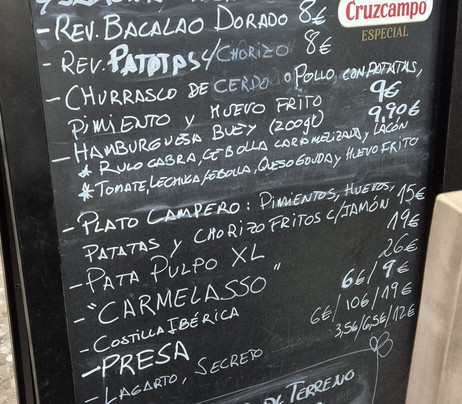 Cruzcampo
ESPECIAL
- REV. BACALAO DORADO 8€
- REV. PATATAS C/CHORIZO 8€
- CHURRASCO DE CERDO o POLLO CON PATATAS,
PIMIENTO y HUEVO FRITO 9€
- HAMBURGUESA BUEY (200gr) 9,90€
* RULO CABRA, CEBOLLA CARAMELIZADA, y LACÓN
* TOMATE, LECHUGA, CEBOLLA, QUESO GOUDA y HUEVO FRITO
- PLATO CAMPERO: PIMIENTOS, HUEVOS,
PATATAS y CHORIZO FRITOS C/JAMÓN 15€
- PATA PULPO XL 19€
- "CARMELASSO" 26€
- COSTILLA IBÉRICA 6€/9€
- PRESA 6€/10€/19€
- LAGARTO, SECRETO 3,5€/6,5€/12€
DE TERRENO